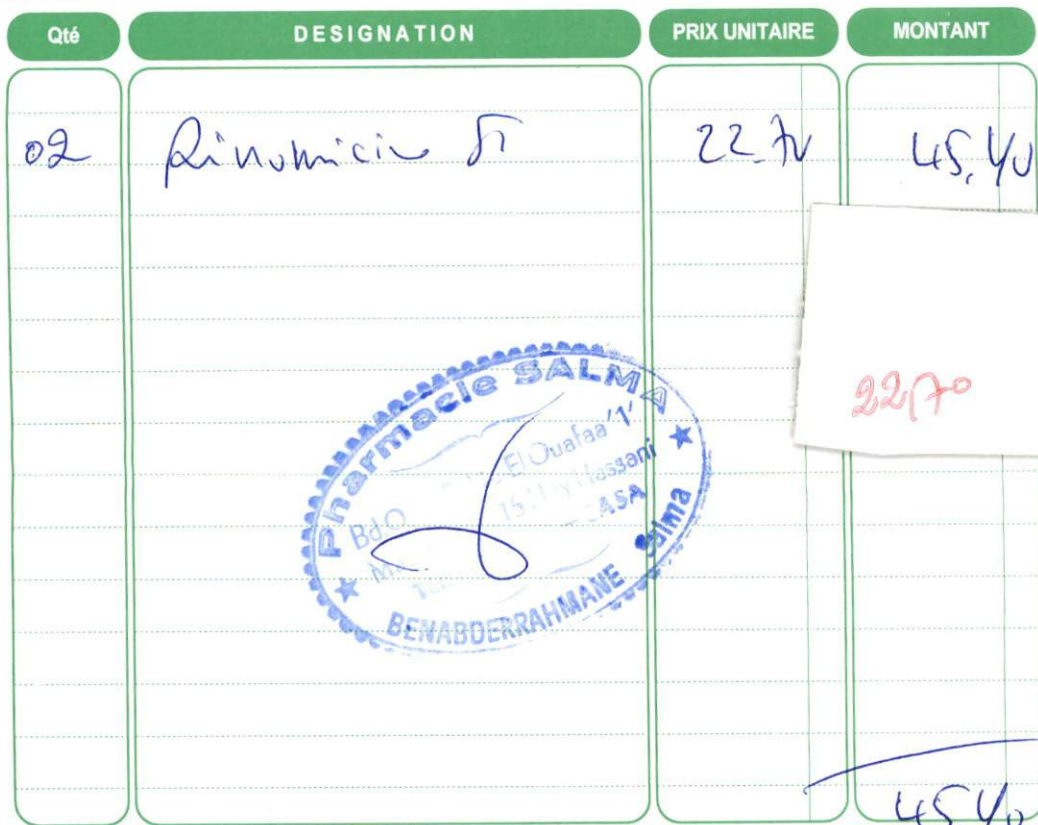 Qté DESIGNATION PRIX UNITAIRE MONTANT
02 Rinomicine 22.70 45,40
22,70
Pharmacie SALMA
El Ouafaa '1'
Bd O Hay Hassani
CASA
BENABDERRAHMANE Salma
45,40